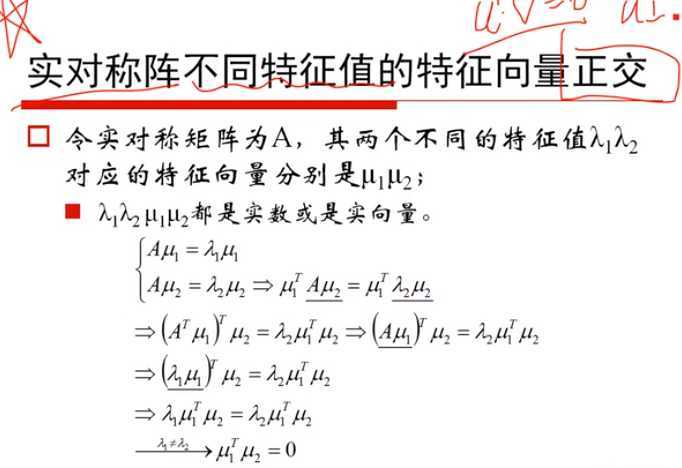 实对称阵不同特征值的特征向量正交
令实对称矩阵为A，其两个不同的特征值λ₁λ₂
对应的特征向量分别是μ₁μ₂；
λ₁λ₂μ₁μ₂都是实数或是实向量。
Aμ₁ = λ₁μ₁
Aμ₂ = λ₂μ₂ ⇒ μ₁ᵀAμ₂ = μ₁ᵀλ₂μ₂
⇒ (Aᵀμ₁)ᵀμ₂ = λ₂μ₁ᵀμ₂ ⇒ (Aμ₁)ᵀμ₂ = λ₂μ₁ᵀμ₂
⇒ (λ₁μ₁)ᵀμ₂ = λ₂μ₁ᵀμ₂
⇒ λ₁μ₁ᵀμ₂ = λ₂μ₁ᵀμ₂
λ₁≠λ₂ → μ₁ᵀμ₂ = 0